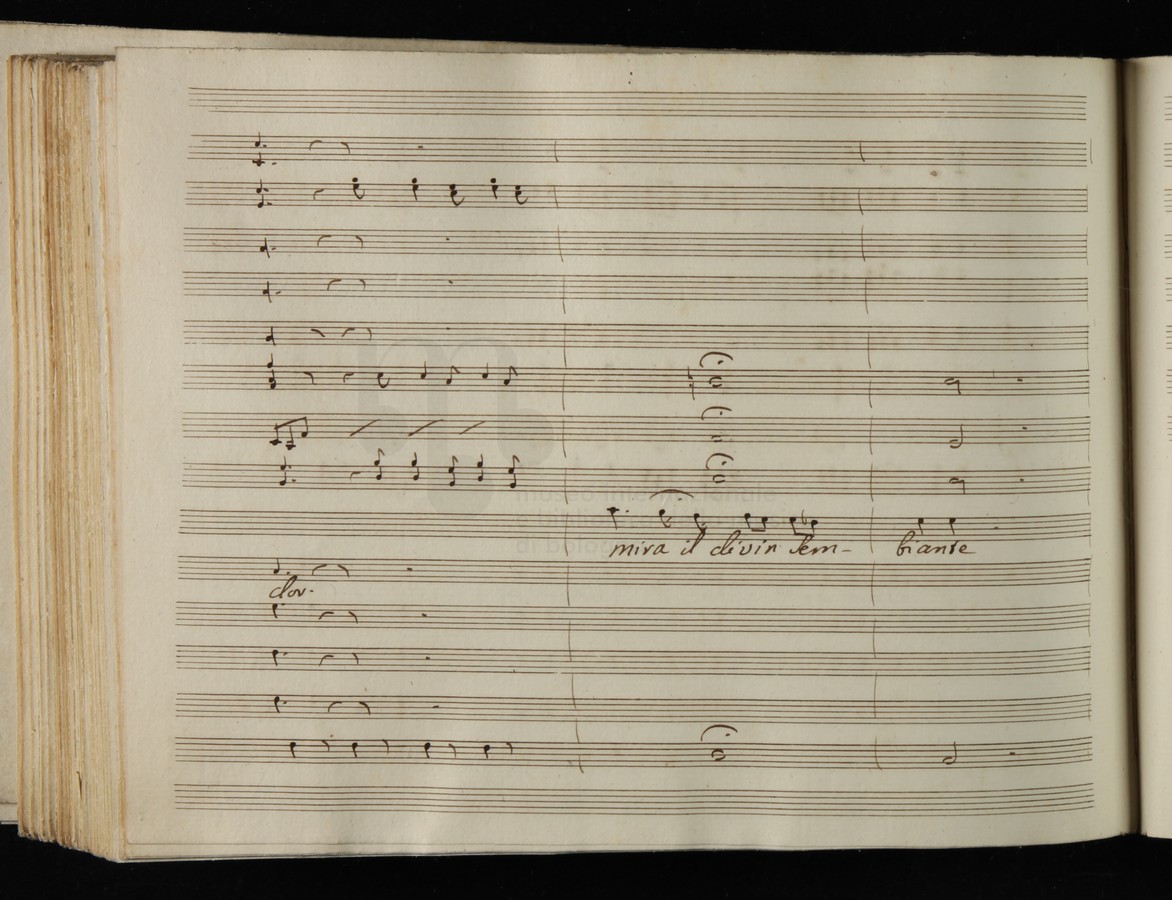 museo internazionale
e biblioteca della musica
di bologna
mira il divin Sem- biante
dor.